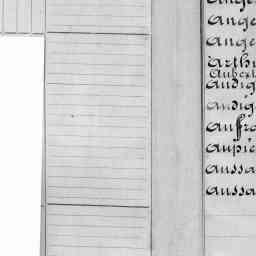 Ange
Ange
Ange
Arthu
Aubert
Audig
Audig
Auffra
Aupic
Aussa
Aussa